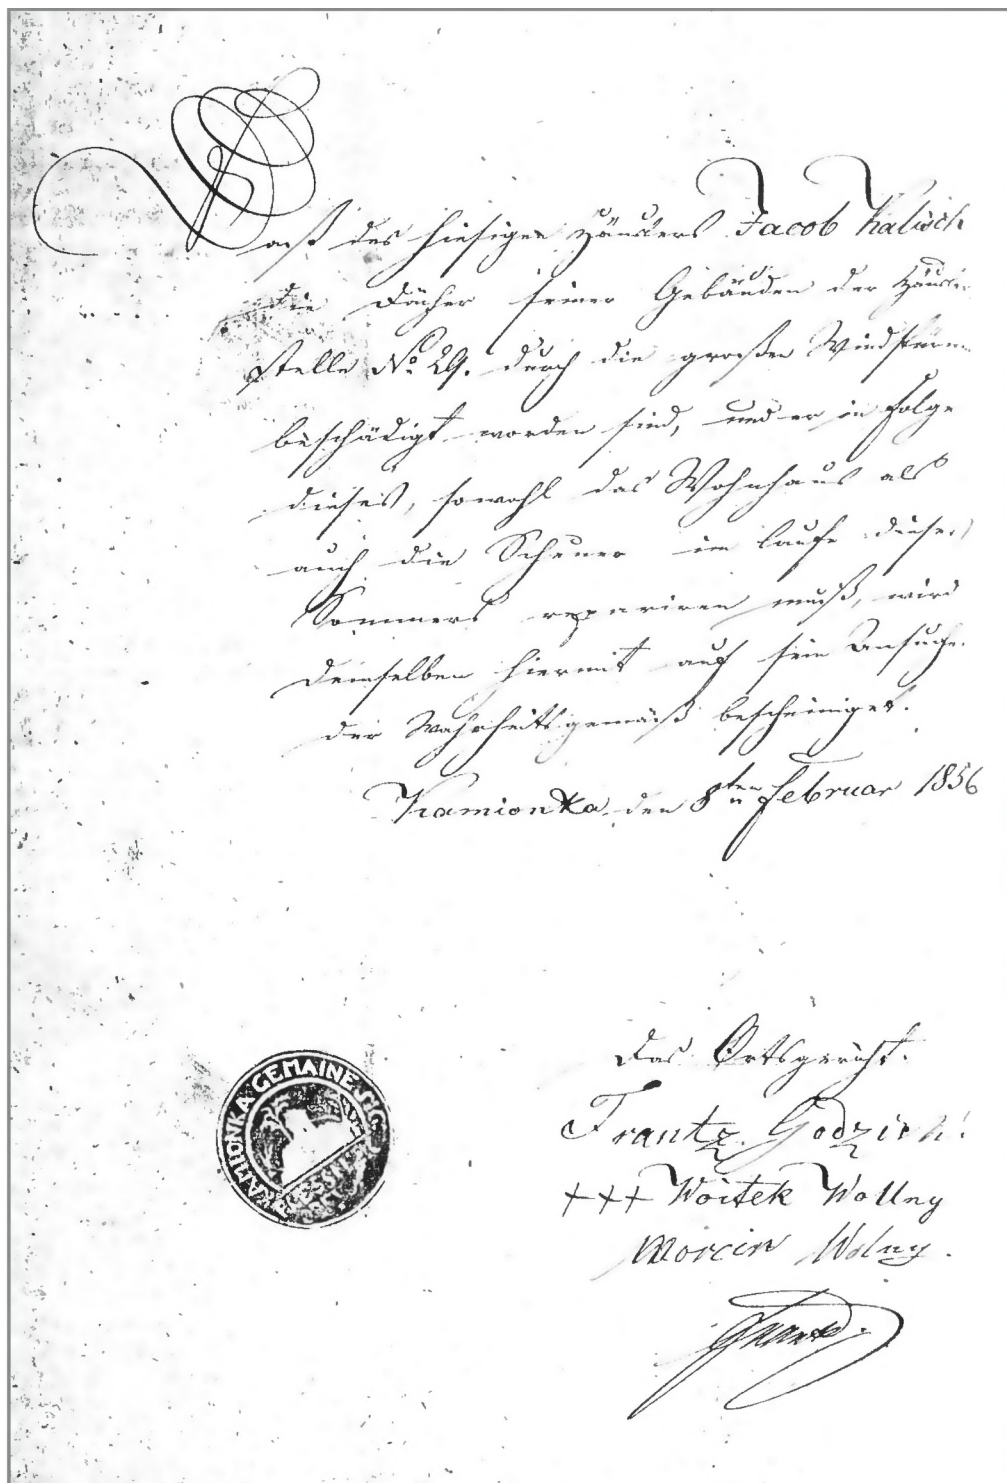 Daß des hiesigen Häuslers Jacob Kalisch
die Dächer seiner Gebäuden der Häusler
stelle No 29. durch die großen Windstürme
beschädigt worden sind, und er in Folge
dieses, sowohl das Wohnhaus als
auch die Scheuer im Laufe dieses
Sommers repariren muß, wird
demselben hiermit auf sein Ansuchen
der Wahrheitsgemäß bescheiniget.
Kamionka, den 8ten Februar 1856
Das Ortsgericht.
Frantz Godzieh.
+++ Woitek Wollny
Morcin Wolny.
KAMIONKA GEMAINE SIG